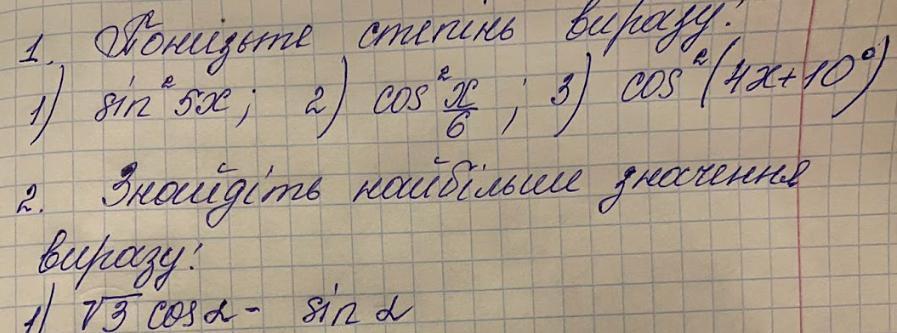 1. Понизьте степінь виразу:
1) sin²5x; 2) cos²x/6; 3) cos²(4x+10°)
2. Знайдіть найбільше значення
виразу:
1) √3 cosα - sin α